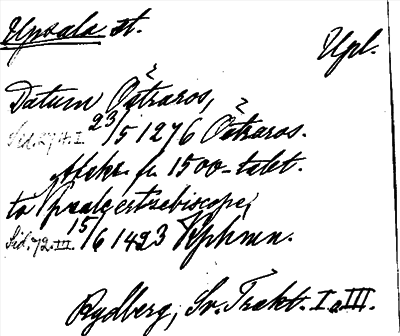 Upsala st.
Upl.
Datum Østraros,
Sid. 274. I. 23/5 1276 Østraros.
Afskr. fr. 1500-talet.
to Upsale ertzebiscope,
Sid. 72. III. 15/6 1423 Kphmn.
Rydberg, Sv. Trakt. I o. III.